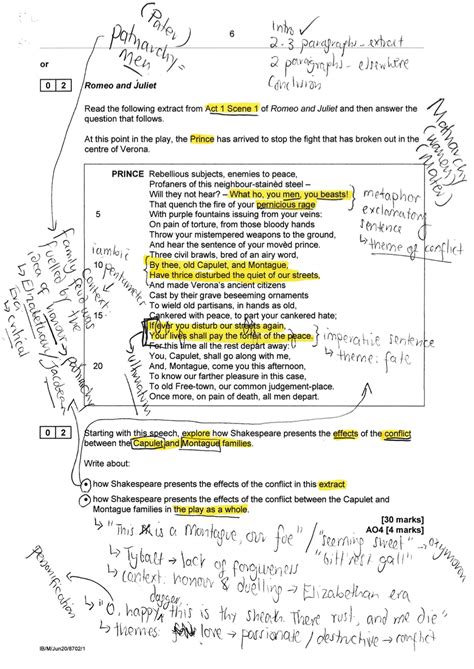 (Pater)
patriarchy =
men
6
Intro ✓
2-3 paragraphs - extract
2 paragraphs - elsewhere
Conclusion
or
0 2
Romeo and Juliet
Read the following extract from Act 1 Scene 1 of Romeo and Juliet and then answer the
question that follows.
At this point in the play, the Prince has arrived to stop the fight that has broken out in the
centre of Verona.
Matriarchy
(Mater)
PRINCE Rebellious subjects, enemies to peace,
Profaners of this neighbour-stainèd steel –
Will they not hear? – What ho, you men, you beasts!
That quench the fire of your pernicious rage
5 With purple fountains issuing from your veins:
On pain of torture, from those bloody hands
Throw your mistempered weapons to the ground,
And hear the sentence of your movèd prince.
Three civil brawls, bred of an airy word,
10 By thee, old Capulet, and Montague,
Have thrice disturbed the quiet of our streets,
And made Verona's ancient citizens
Cast by their grave beseeming ornaments
To wield old partisans, in hands as old,
15 Cankered with peace, to part your cankered hate;
If ever you disturb our streets again,
Your lives shall pay the forfeit of the peace.
For this time all the rest depart away:
You, Capulet, shall go along with me,
20 And, Montague, come you this afternoon,
To know our farther pleasure in this case,
To old Free-town, our common judgement-place.
Once more, on pain of death, all men depart.
metaphor
exclamatory
sentence
↳ theme of conflict
iambic
pentameter
family feud
fuelled by the
idea of honour
↳ Elizabethan/Jacobean
Era
context
patriarchy
imperative sentence
↳ theme: fate
0 2
Starting with this speech, explore how Shakespeare presents the effects of the conflict
between the Capulet and Montague families.
Write about:
• how Shakespeare presents the effects of the conflict in this extract
• how Shakespeare presents the effects of the conflict between the Capulet and
Montague families in the play as a whole.
[30 marks]
AO4 [4 marks]
↳ "This is a Montague, our foe" / "seeming sweet" → oxymoron
"bitt'rest gall"
↳ Tybalt → lack of forgiveness
↳ context: honour & duelling → Elizabethan era
personification
↳ "O, happy dagger this is thy sheath. There rust, and me die"
↳ themes: love → passionate / destructive → conflict
IB/M/Jun20/8702/1